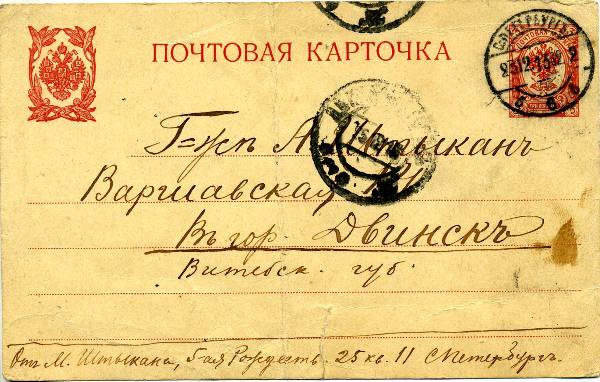 ПОЧТОВАЯ КАРТОЧКА
Г=жѣ А. Штыканъ
Варшавская
Въ гор. Двинскъ
Витебск. губ.
Отъ М. Штыкана, 5-ая Рождеств. 25 кв. 11 С Петербургъ.